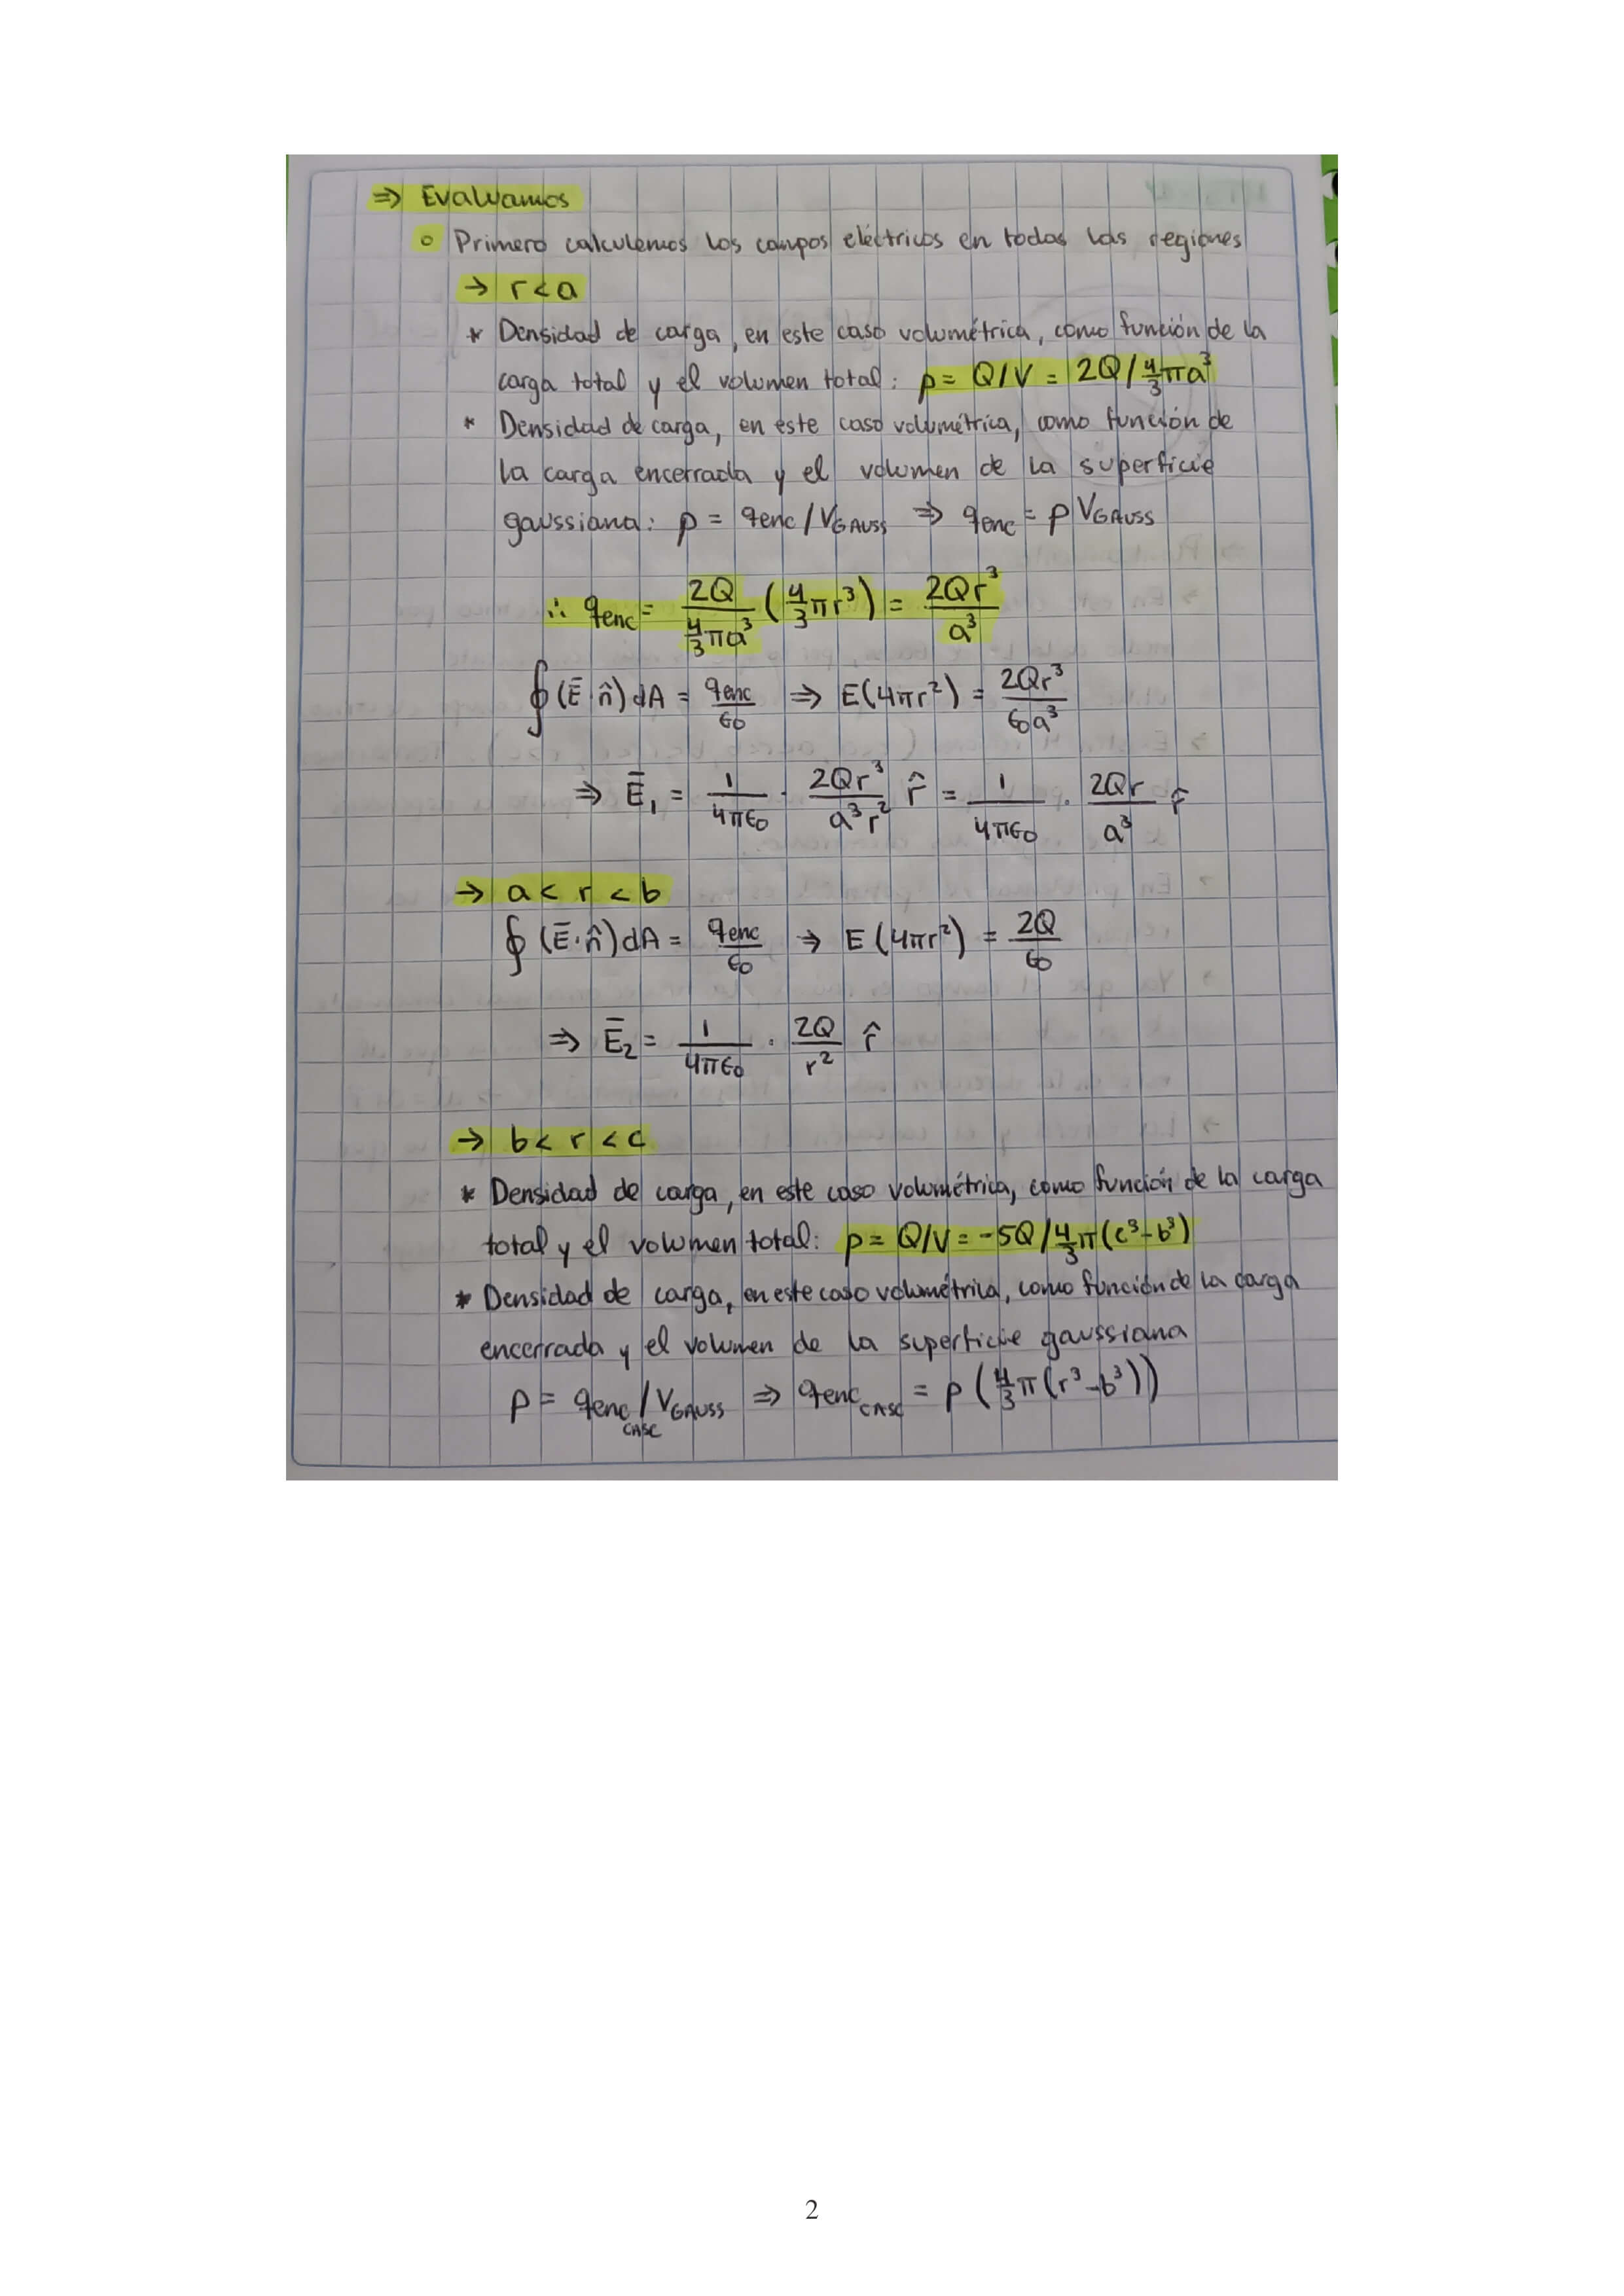 ⇒ Evaluamos
○ Primero calculemos los campos eléctricos en todas las regiones
→ r < a
* Densidad de carga, en este caso volumétrica, como función de la
carga total y el volumen total: ρ = Q/V = 2Q/4/3πa³
* Densidad de carga, en este caso volumétrica, como función de
la carga encerrada y el volumen de la superficie
gaussiana: ρ = qenc/VGAUSS ⇒ qenc = ρ VGAUSS
∴ qenc = 2Q/(4/3πa³) (4/3πr³) = 2Qr³/a³
∮(Ē·n̂)dA = qenc/ϵ₀ ⇒ E(4πr²) = 2Qr³/ϵ₀a³
⇒ Ē₁ = 1/4πϵ₀ · 2Qr³/a³r² r̂ = 1/4πϵ₀ · 2Qr/a³ r̂
→ a < r < b
∮(Ē·n̂)dA = qenc/ϵ₀ ⇒ E(4πr²) = 2Q/ϵ₀
⇒ Ē₂ = 1/4πϵ₀ · 2Q/r² r̂
→ b < r < c
* Densidad de carga, en este caso volumétrica, como función de la carga
total y el volumen total: ρ = Q/V = -5Q/4/3π(c³-b³)
* Densidad de carga, en este caso volumétrica, como función de la carga
encerrada y el volumen de la superficie gaussiana
ρ = qenc CASC/VGAUSS ⇒ qenc CASC = ρ(4/3π(r³-b³))
2